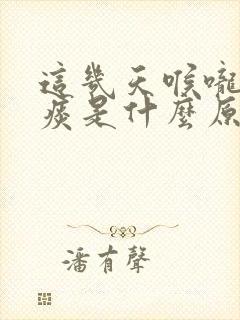 這幾天喉嚨
痰是什麼原
潘有聲